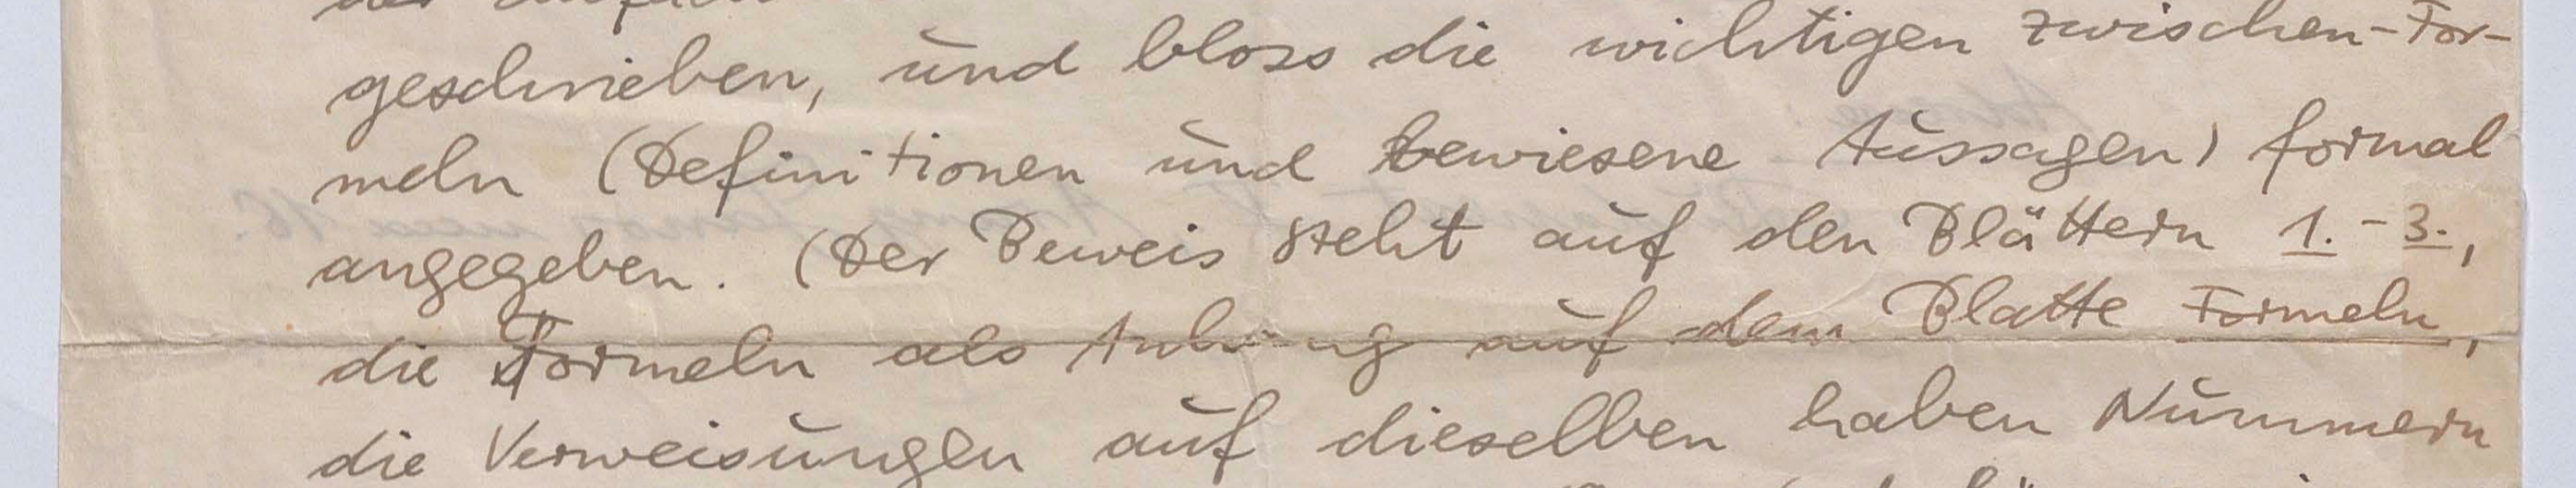 geschrieben, und bloss die wichtigen zwischen-For-
meln (Definitionen und bewiesene Aussagen) formal
angegeben. (Der Beweis steht auf den Blättern 1.-3.,
die Formeln als Anhang auf dem Blatte Formeln,
die Verweisungen auf dieselben haben Nummern